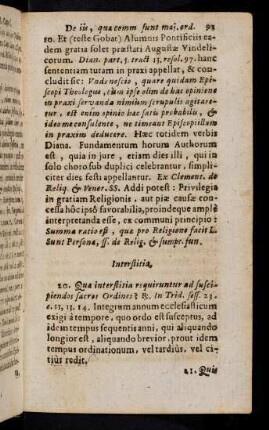 De iis, quæ comm sunt maj. ord. 93
ro. Et (teste Gobat) Alumnis Pontificiis ea-
dem gratia solet præstari Augustæ Vindeli-
corum. Dian. part. 3. tract 13. resol. 97. hanc
sententiam tutam in praxi appellat, & con-
cludit sic: Vade nosco, quare quidam Epi-
scopi Theologúe, cùm ipse olim de hac opinione
in praxi servanda nimium scrupulis agitare-
tur, est enim opinio hæc satis probabili, &
ideo me consulente, ne timeant Episcopi illam
in praxim deducere. Hæc totidem verbis
Diana. Fundamentum horum Authorum
est, quia in jure, etiam dies illi, qui in
solo choro sub duplici celebrantur, simpli-
citer dies festi appellantur. Ex Clement. de
Reliq. & Vener. SS. Addi potest: Privilegia
in gratiam Religionis, aut piæ causæ con-
cessa hôc ipsô favorabilia, proindeque amplè
interpretanda esse, ex communi principio:
Summa ratio est, quæ pro Religione facit L.
Sunt Personæ, ff. de Relig. & sumpt. fun.
Interstitia.
20. Qua interstitia requiruntur ad susci-
piendos sacros Ordines? R. in Trid. sess. 23.
c. 11, 13. 14. Integrium annum ecclesiasticum
exigi à tempore, quo ordo est susceptus, ad
idem tempus sequentis anni, qui aliquando
longior est, aliquando brevior, prout idem
tempus ordinationum, vel tardiùs, vel ci-
tiùs redit.
21. Quis